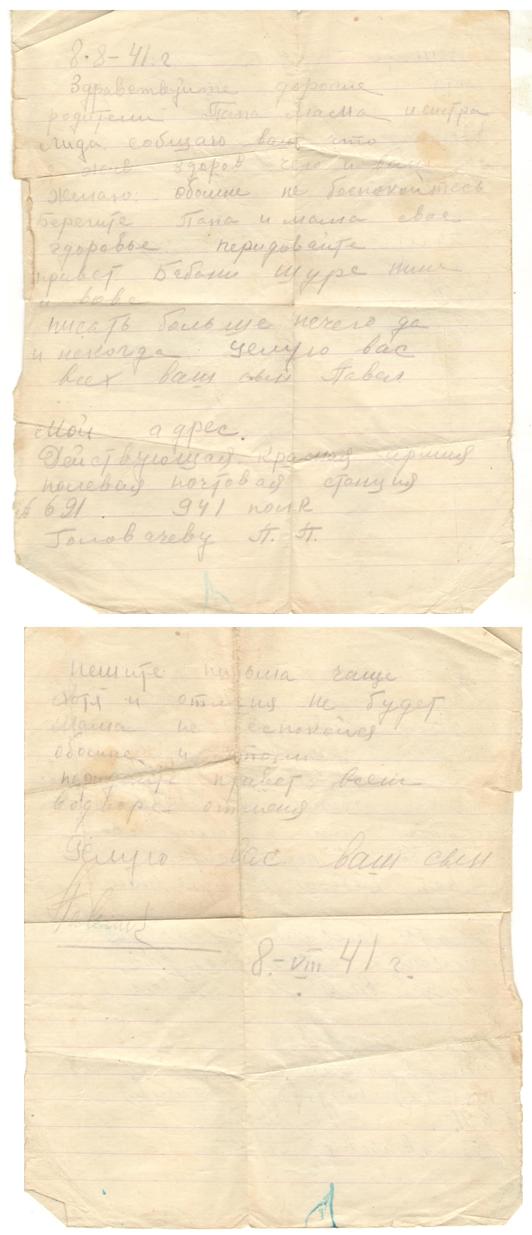 8·8-41.г
Здравствуйте дорогие
родители Папа Мама и систра
Лида сообщаю вам что
я жив здоров чего и вам
желаю. обомне не боспокойтесь
Берегите Папа и мама свое
здоровье. перидовайте
привет Бабани Шуре Нине
и вове
писать больше нечего да
и некогда Целую вас
всех ваш сын Павел
Мой адрес.
Действующая Красная армия
полевая почтовая станция
№ 691. 941 полк
Головачеву П. П.
пешите письма чаще
хотя и от меня не будет
Мама не беспокойся
обомне и
перидайте привет всем
отменя
Целую вас ваш сын
8.-VIII 41 г.